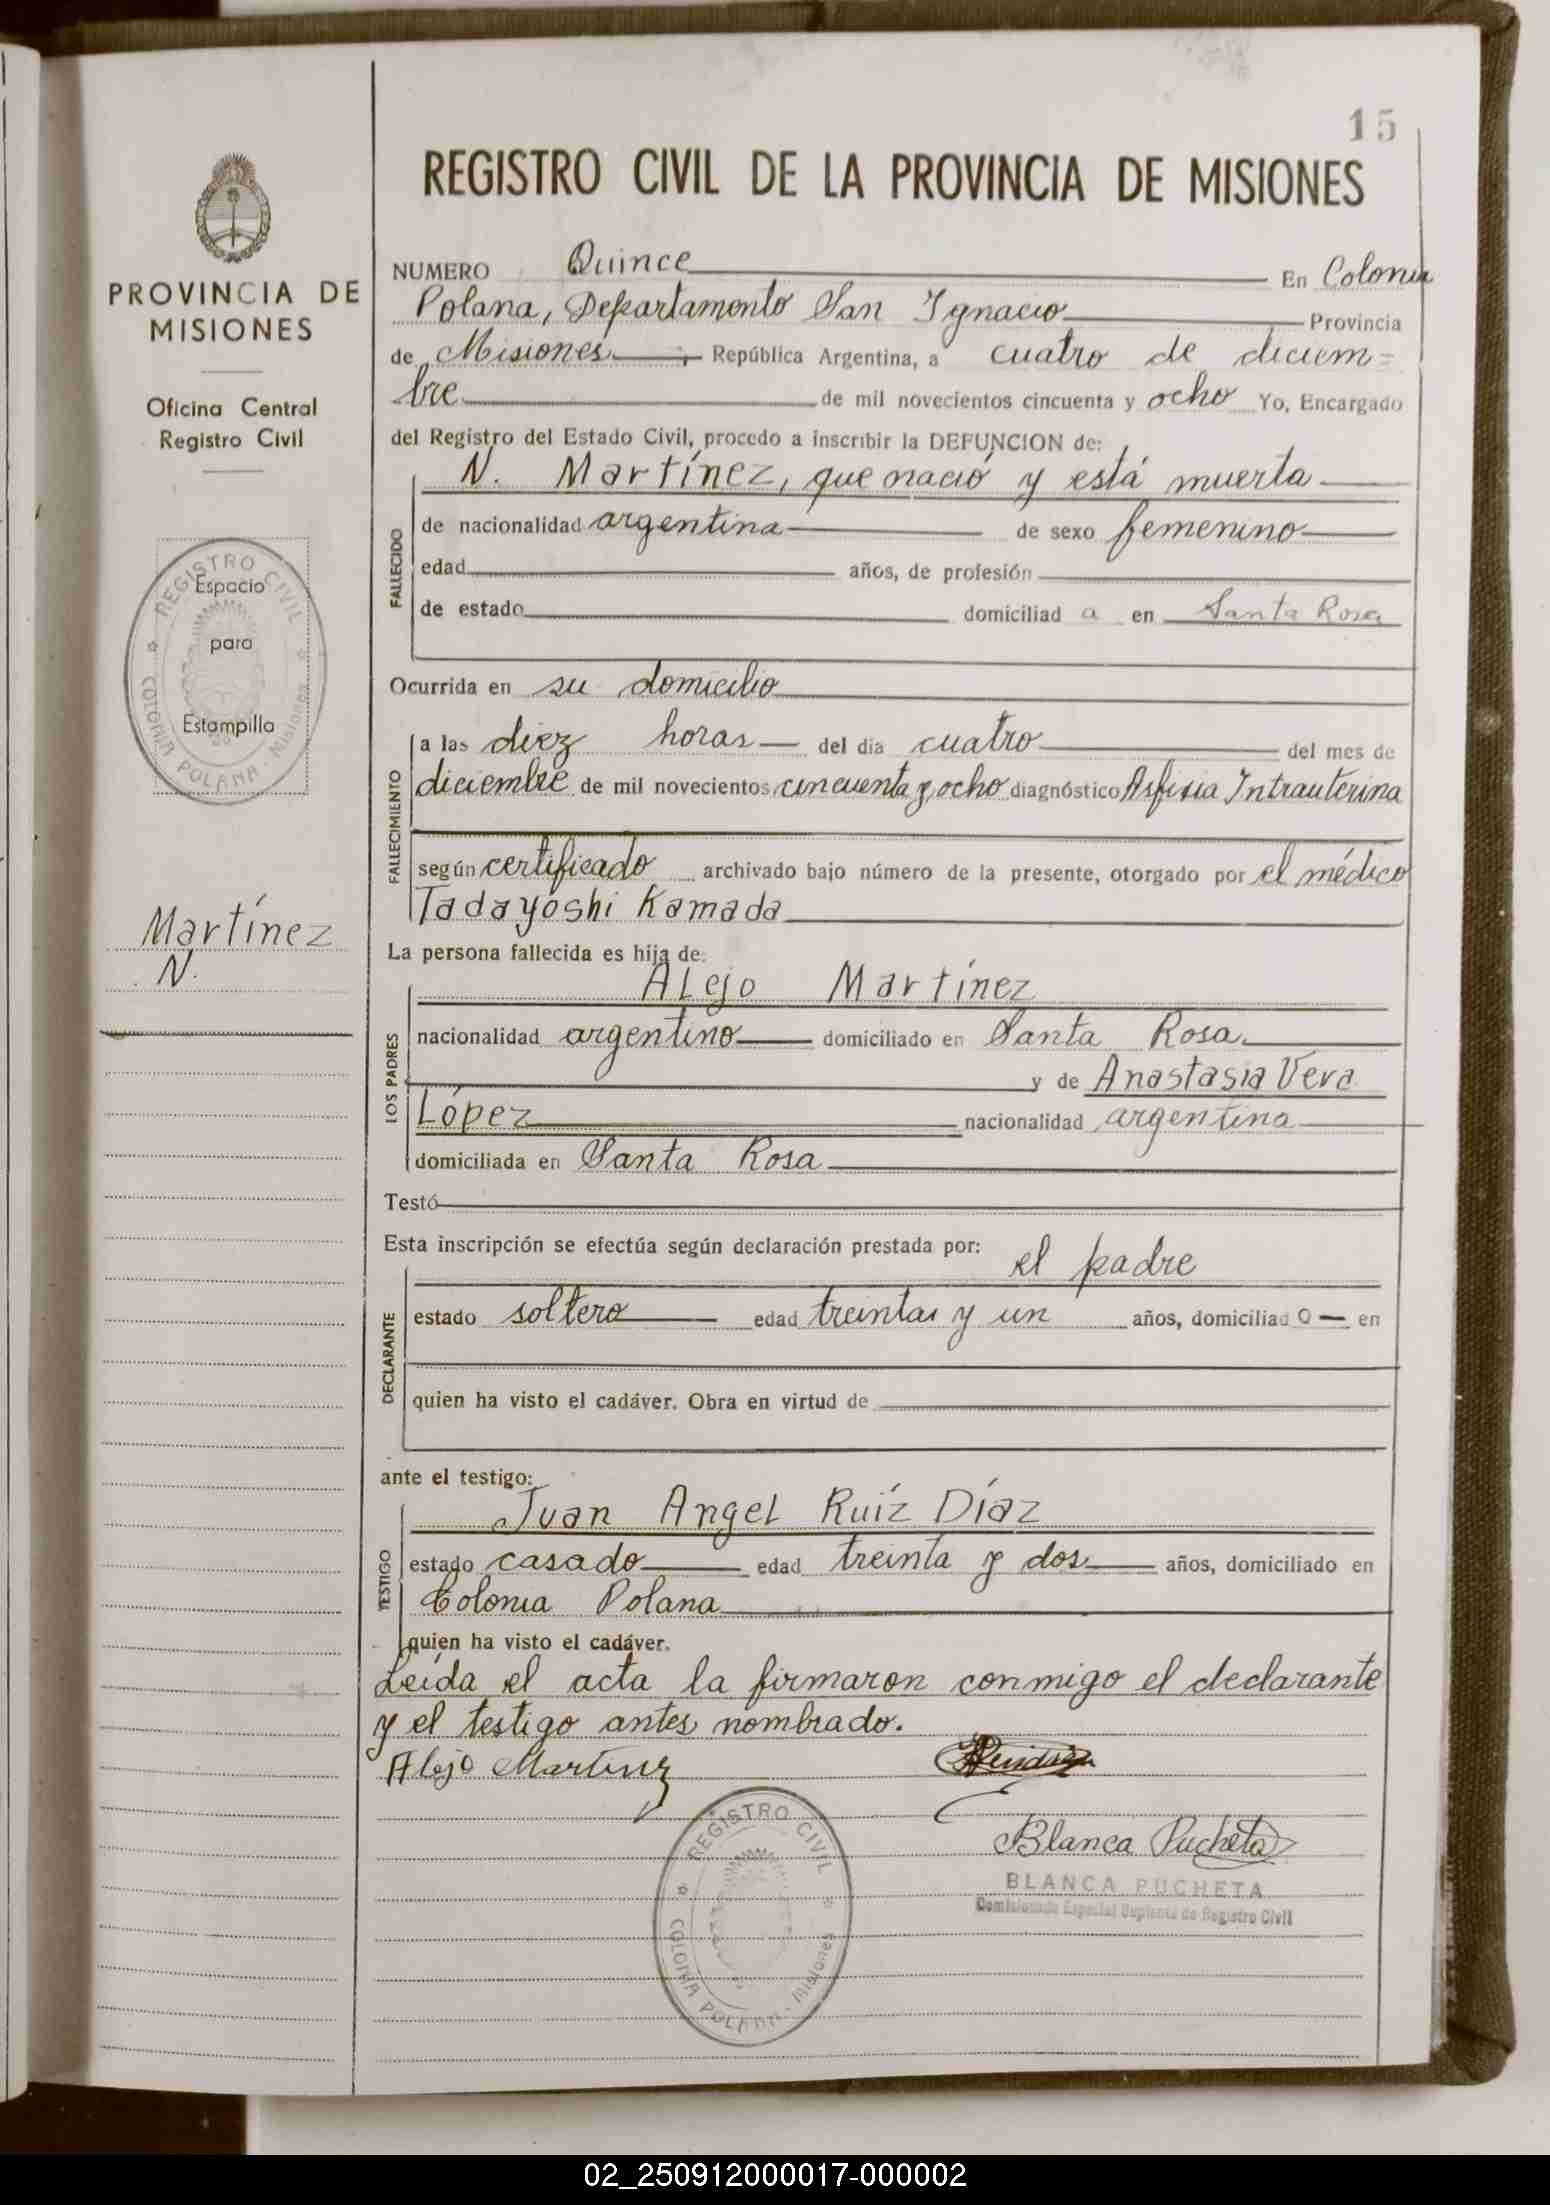 15
REGISTRO CIVIL DE LA PROVINCIA DE MISIONES
PROVINCIA DE
MISIONES
Oficina Central
Registro Civil
REGISTRO CIVIL
COLONIA POLANA - Misiones
Espacio
para
Estampilla
Martínez
N.
NUMERO Quince En Colonia
Polana, Departamento San Ignacio Provincia
de Misiones, República Argentina, a cuatro de diciem=
bre de mil novecientos cincuenta y ocho Yo, Encargado
del Registro del Estado Civil, procedo a inscribir la DEFUNCION de:
FALLECIDO
N. Martínez, que nació y está muerta
de nacionalidad argentina de sexo femenino
edad años, de profesión
de estado domiciliad a en Santa Rosa
Ocurrida en su domicilio
FALLECIMIENTO
a las diez horas del día cuatro del mes de
diciembre de mil novecientos cincuenta y ocho diagnóstico Asfisia Intrauterina
según certificado archivado bajo número de la presente, otorgado por el médico
Tadayoshi Kamada
La persona fallecida es hija de:
LOS PADRES
Alejo Martínez
nacionalidad argentino domiciliado en Santa Rosa
y de Anastasia Vera
López nacionalidad argentina
domiciliada en Santa Rosa
Testó
Esta inscripción se efectúa según declaración prestada por: el padre
DECLARANTE
estado soltero edad treintai y un años, domiciliad o en
quien ha visto el cadáver. Obra en virtud de
ante el testigo:
TESTIGO
Juan Angel Ruíz Díaz
estado casado edad treinta y dos años, domiciliado en
Colonia Polana
quien ha visto el cadáver.
Leída el acta la firmaron conmigo el declarante
y el testigo antes nombrado.
Alejo Martinez
Blanca Pucheta
BLANCA PUCHETA
Comisionado Especial Suplente de Registro Civil
REGISTRO CIVIL
COLONIA POLANA - Misiones
02_250912000017-000002